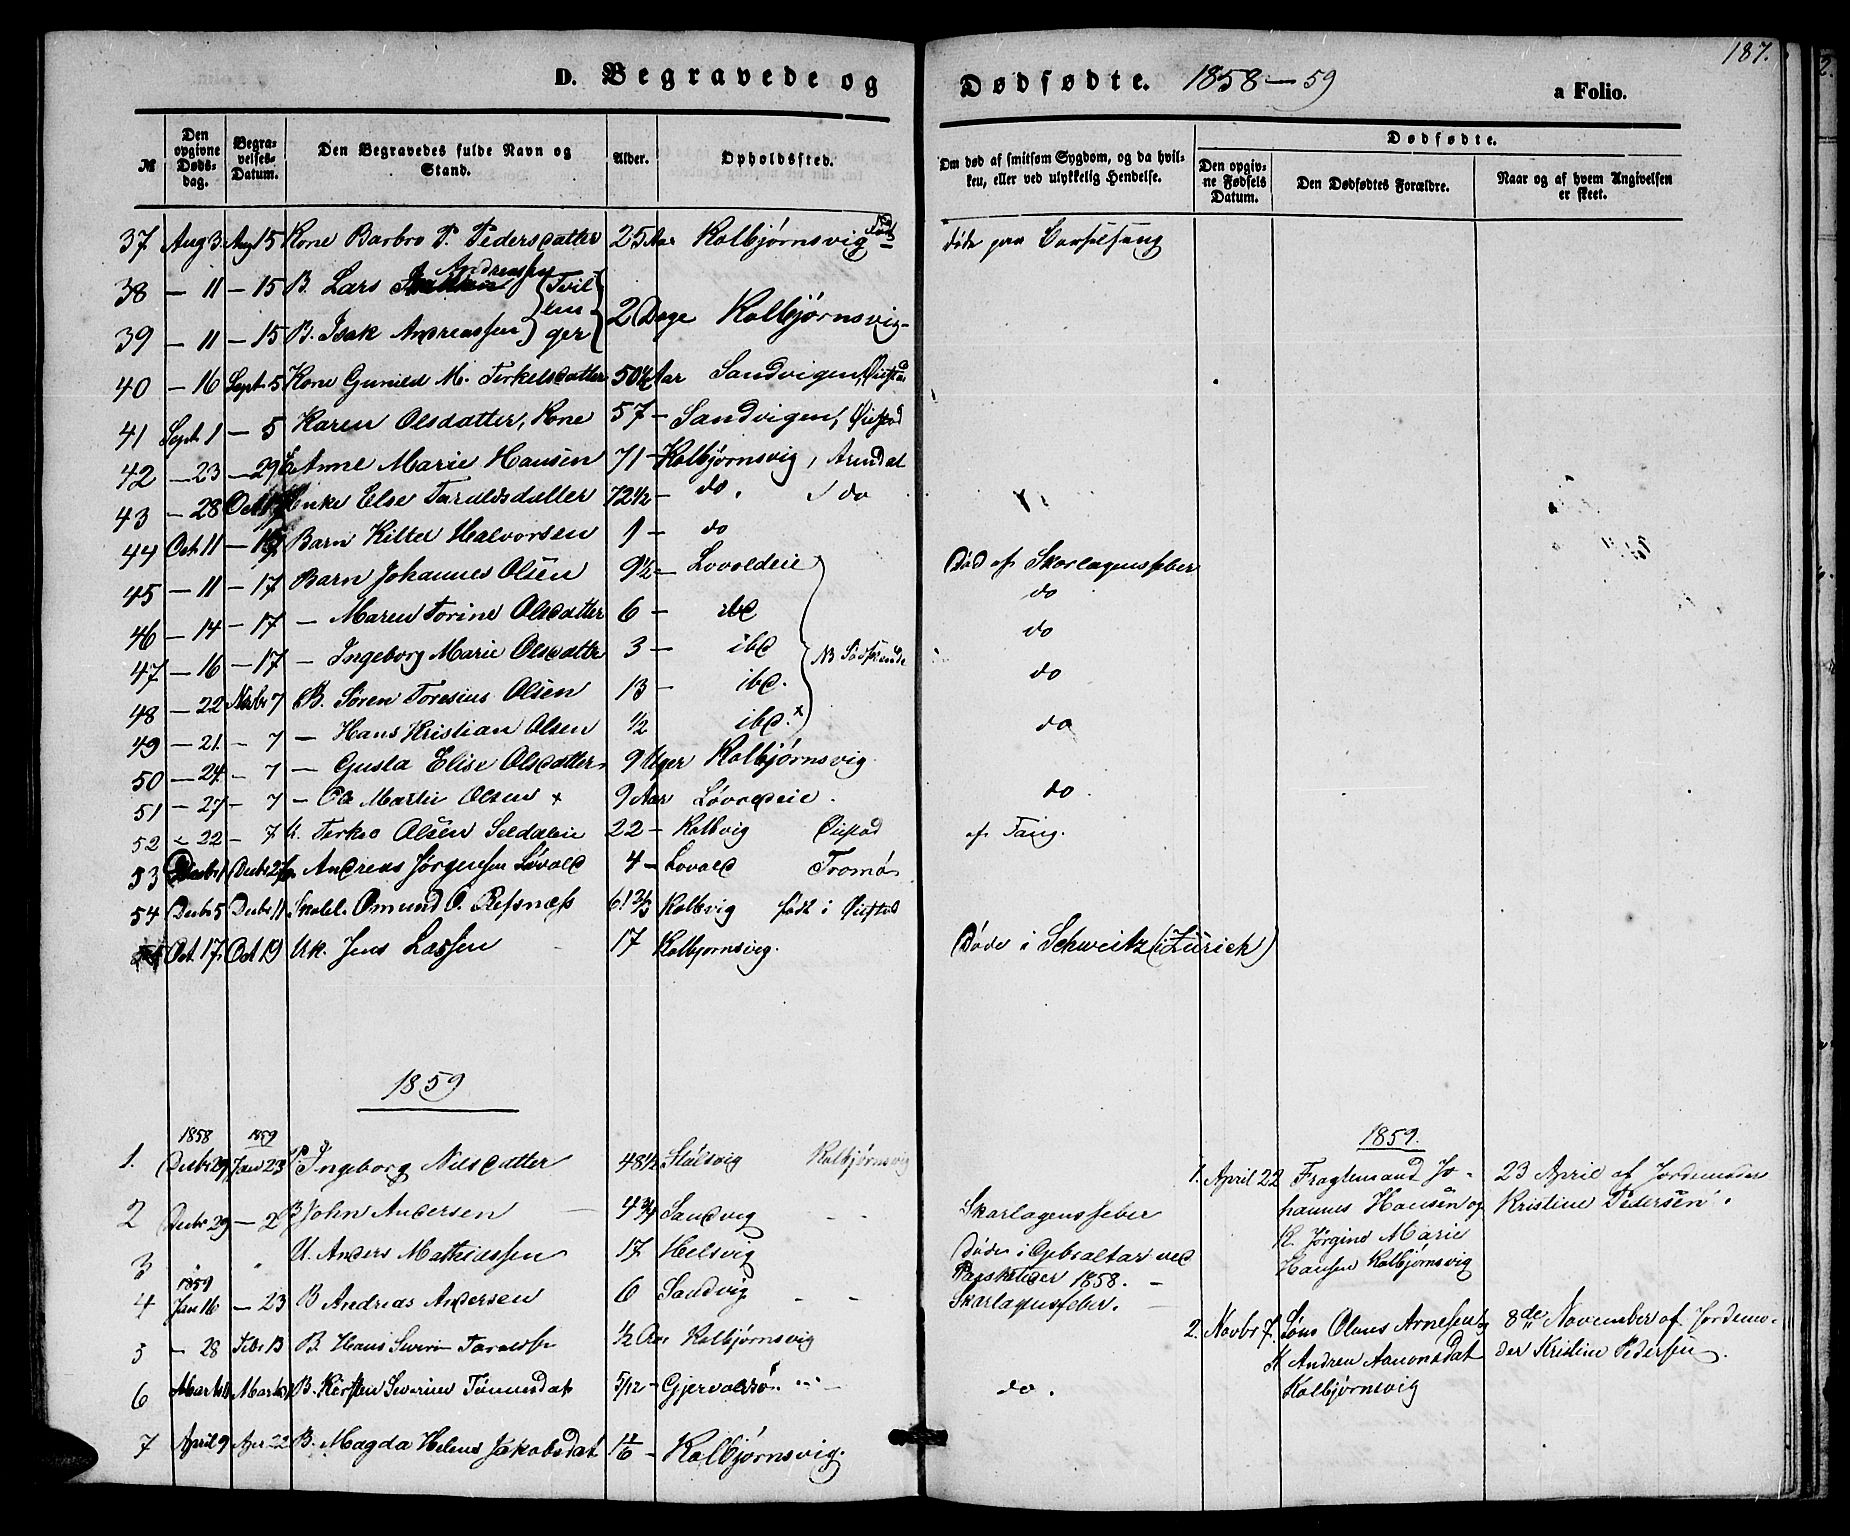 187.
D. Begravede og Dødfødte. 1858-59 a Folio.
№ Den opgivne Døds-dag. Begra-velses-Datum. Den Begravedes fulde Navn og Stand. Alder. Opholdssted. Om død af smitsom Sygdom, og da hvil-ken, eller ved ulykkelig Hendelse. Dødfødte. Den opgiv-ne Fødsels Datum. Den Dødfødtes Forældre. Naar og af hvem Angivelsen er skeet.
37 Aug 3 Aug 15 Kone Barbro P. Pedersdatter 25 Aar Kolbjørnsvig døde paa Barselseng
38 - 11 - 15 B. Lars Andreassen } Tvil
39 - 11 - 15 B. Isak Andreassen } ger 2 Dage Kolbjørnsvig
40 - 16 Sept 5 Kone Gunild M. Terkelsdatter 50½ Aar Sandvigen, Øiestad
41 Sept 1 - 5 Karen Olsdatter, Kone 57 - Sandvigen, Øiestad
42 - 23 - 29 Anne Marie Hansen 71 - Kolbjørnsvig, Arendal
43 - 28 Oct Enke Else Taraldsdatter 72½ - do. do
44 Oct 11 - Barn Kittel Halvorsen 1 - do
45 - 11 - 17 Barn Johannes Olsen 9½ - Lovoldeie Død af Skarlagensfeber
46 - 14 - 17 - Maren Torine Olsdatter 6 - ibd do
47 - 16 - 17 - Ingeborg Marie Olsdatter 3 - ibd NB Sødskende do
48 - 22 Novbr 7 B. Søren Toresius Olsen 13 - ibd. do
49 - 21 - 7 - Hans Kristian Olsen ½ ibd. x do
50 - 24 - 7 - Gusta Elise Olsdatter 9 Uger Kolbjørnsvig
51 - 27 - 7 - Ole Martin Olsen x 9 Aar Løvoldeie. do
52 - 22 - 7 U. Terkel Olsen Seldaleie 22 - Kolbvig Øiestad af Tæring.
53 Decbr 1 Decbr 27 Andreas Jørgensen Løvold 4 - Lovold Tromø
54 Decbr 5 Decbr 11 Skolel. Omund O. Refsnæs 61⅔ Kolbvig født i Øiestad
Oct. 17 Oct 19 Uk. Jens Lassen 17 Kolbjørnsvig. Døde i Schweitz (i Zürich)
1859
1859.
1858 1859
1. Decbr 29 Janr 23 Ingeborg Nilsdatter 48½ Stølsvig Kolbjørnsvig
1. April 22 Fragtemand Jo- 23 April af Jordemoder
2 Decbr 29 - 2 B John Andersen 4¾ Sandvig Skarlagensfeber
hannes Hansen og Kristine Pedersen.
K. Jørgine Marie
3 U. Anders Mathiassen 17 Helsvig Døde i Gibraltar ved
Hansen Kolbjørnsvig
Paasketider 1858.
1859
4 Jan 16 - 23 B Andreas Andersen 6 Sandvig Skarlagensfeber.
2. Novbr 7. Løns Olaus Arnesen og 8de November af Jordemo-
5 - 28 Febr 13 B. Hans Severin ½ Aar Kolbjørnsvig
K Andrea Aanonsdat der Kristine Pedersen.
6 Marts Marts B. Kirsten Severine Tønnesdat 5/12 - Gjervoldsø do.
Kolbjørnsvig
7 April 9 Apr 22 B. Magda Helene Jakobsdat - Kolbjørnsvig.